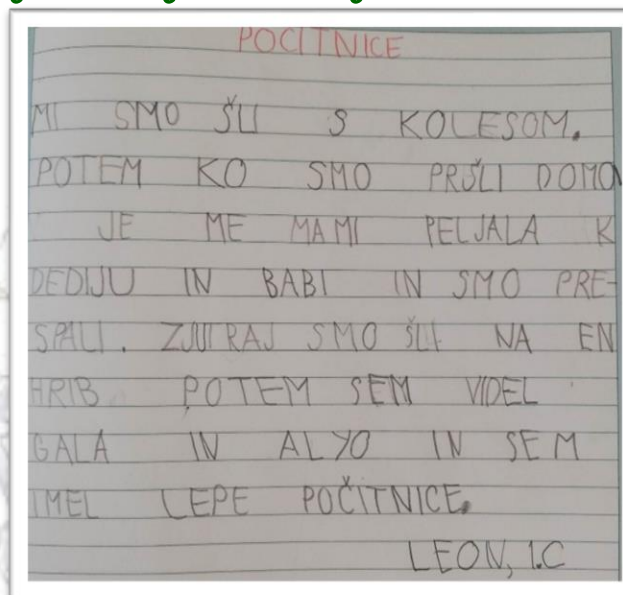 POČITNICE
MI SMO ŠLI S KOLESOM.
POTEM KO SMO PRŠLI DOMOV
JE ME MAMI PELJALA K
DEDIJU IN BABI IN SMO PRE-
SPALI. ZJUTRAJ SMO ŠLI NA EN
HRIB. POTEM SEM VIDEL
GALA IN ALYO IN SEM
IMEL LEPE POČITNICE.
LEON, 1.C